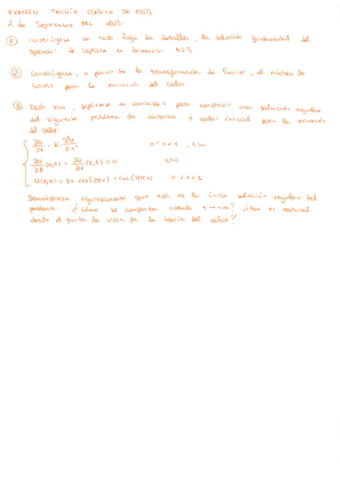 EXAMEN: TEORÍA CLÁSICA DE EDPS
2 de Septiembre DEL 2013
① Constrúyase con todo lujo de detalles, la solución fundamental del
operador de Laplace en dimensión N≥3.
② Constrúyase, a partir de la transformada de Fourier, el núcleo de
Gauss para la ecuación del calor.
③ Dado k>0, sepárense variables para construir una solución regular
del siguiente problema de contorno y valor inicial para la ecuación
del calor:
∂u/∂t = k ∂²u/∂x² 0<x<1, t>0
∂u/∂x (0,t) = ∂u/∂x (1,t) = 0 t>0
u(x,0) = cos(2πx) + cos(4πx) 0<x<1
Demuéstrese rigurosamente que esa es la única solución regular del
problema. ¿Cómo se comporta cuando t→+∞? ¿Es natural
desde el punto de vista de la teoría del calor?